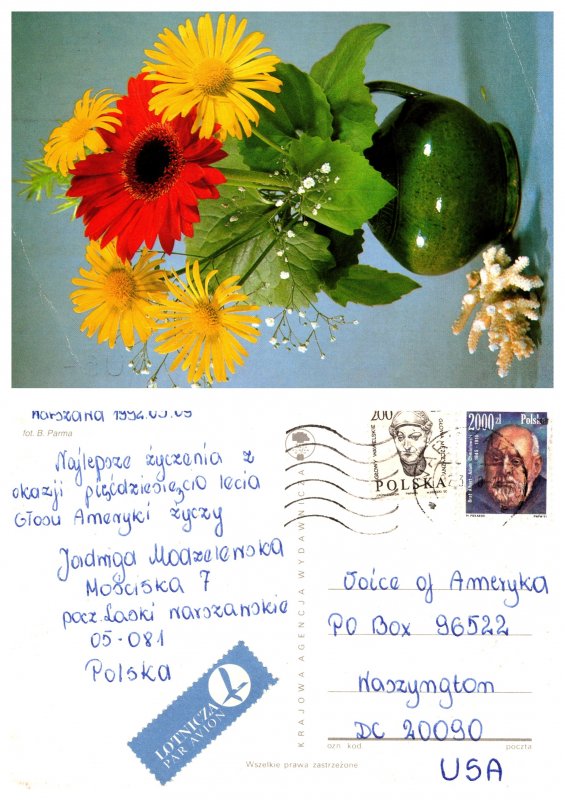 Warszawa 1992.03.09
fot. B. Parma
Najlepsze życzenia z
okazji pięćdziesięcio lecia
Głosu Ameryki życzy
Jadwiga Modzelewska
Mościska 7
pocz. Laski Warszawskie
05-081
Polska
LOTNICZA
PAR AVION
KRAJOWA AGENCJA WYDAWNICZA
200
POLSKA
2000 zł Polska
Voice of Ameryka
PO Box 96522
Waszyngton
DC 20090
ozn. kod poczta
USA
Wszelkie prawa zastrzeżone